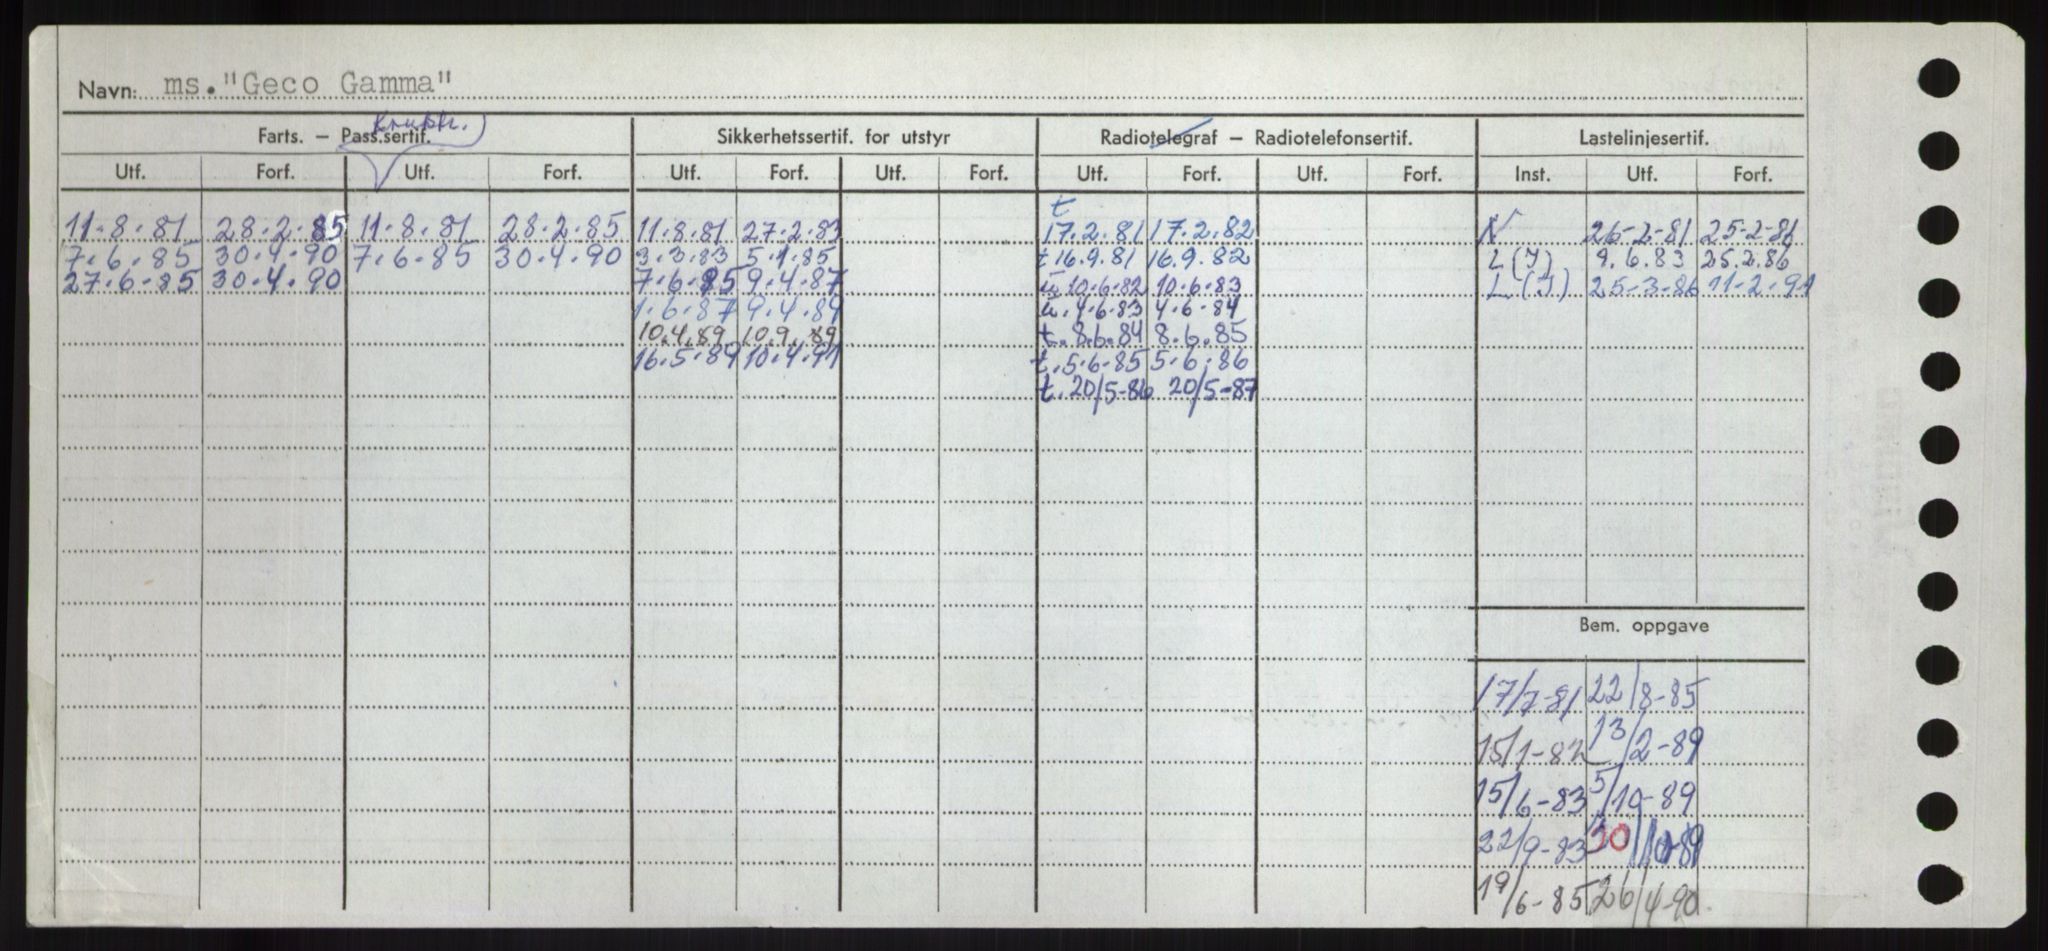 Navn: ms."Geco Gamma"
Farts. – Pass.sertif. Sikkerhetssertif. for utstyr Radiotelegraf – Radiotelefonsertif. Lastelinjesertif.
Utf. Forf. Utf. Forf. Utf. Forf. Utf. Forf. Utf. Forf. Utf. Forf. Inst. Utf. Forf.
t
11.8.81 28.2.85 11.8.81 28.2.85 11.8.81 27.2.83 17.2.81 17.2.82 N 26-2-81 25-2-86
7.6.85 30.4.90 7.6.85 30.4.90 3.3.83 5.1.85 t 16.9.81 16.9.82 L (I) 9.6.83 25.2.86
27.6.85 30.4.90 7.6.85 9.4.87 10.6.82 10.6.83 L (I) 25-3-86 11-2-91
1.6.87 9.4.89 4.6.83 4.6.84
10.4.89 10.9.89 t. 8.6.84 8.6.85
16.5.89 10.4.91 t. 5.6.85 5.6.86
t. 20/5-86 20/5-87
Bem. oppgave
17/7-81 22/8-85
15/1-82 13/2-89
15/6-83 5/10-89
22/9-83 30/10-89
19/6-85 26/4-90.